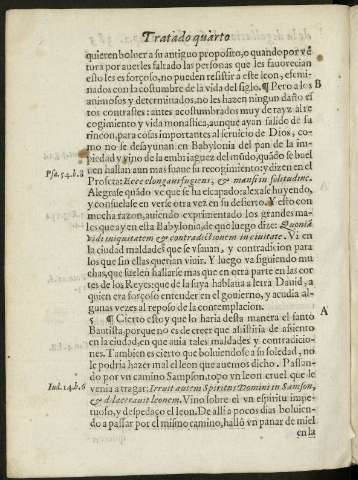 Tratado quarto
quieren boluer a su antiguo proposito, o quando por vē
tura por auerles faltado las personas que les fauorecian
esto les es forçoso, no pueden resistir a este leon, efemi-
nados con la costumbre de la vida del siglo. ¶ Pero a los B
animosos y determinados, no les hazen ningun daño es
tos contrastes: antes acostumbrados muy de rayz al re
cogimiento y vida monastica, aunque ayan salido de su
rincon, para cosas importantes al seruicio de Dios, co-
mo no se desayunan en Babylonia del pan de la im-
piedad y vino de la embriaguez del mūdo, quādo se buel
Psa. 54. b. 8 uen hallan aun mas suaue su recogimiento: y dizen en el
Profeta: Ecce elongaui fugiens, & mansi in solitudine.
Alegrase quādo ve que se ha escapado: alexase huyendo,
y consuelase en verse otra vez en su desierto. Y esto con
mucha razon, auiendo exprimentado los grandes ma-
les que ay en esta Babylonia, de que luego dize: Quoniā
vidi iniquitatem & contradictionem in ciuitate. Vi en
la ciudad maldades que se vsauan, y contradicion para
los que sin ellas querian viuir. Y luego va siguiendo mu
chas, que suelen hallarse mas que en otra parte en las cor
tes de los Reyes: que de la suya habla a la letra Dauid, a
quien era forçoso entender en el gouierno, y acudia al-
gunas vezes al reposo de la contemplacion. A
5 ¶ Cierto esto y que lo haria desta manera el santo
Bautista, porque no es de creer que assistiria de assiento
en la ciudad, en que auia tales maldades y contradicio-
nes. Tambien es cierto que boluiendose a su soledad, no
le podria hazer mal el leon que auemos dicho. Passan-
do por vn camino Sanson, topo vn leon cruel que le
Iud. 14. b. 6 venia a tragar: Irruit autem Spiritus Domini in Samson,
& dilacerauit leonem. Vino sobre el vn espiritu impe-
tuoso, y despedaço el leon. De alli a pocos dias boluien-
do a passar por el mismo camino, hallò vn panar de miel
en la